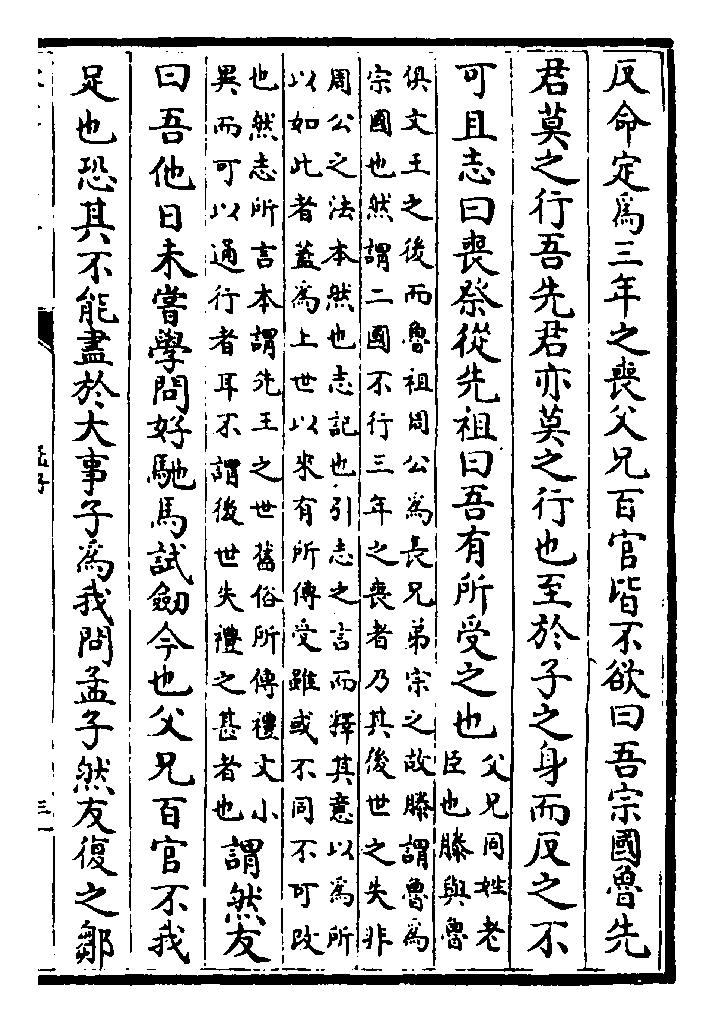 反命定為三年之喪父兄百官皆不欲曰吾宗國魯先
君莫之行吾先君亦莫之行也至於子之身而反之不
可且志曰喪祭從先祖曰吾有所受之也
父兄同姓老
臣也滕與魯
俱文王之後而魯祖周公為長兄弟宗之故滕謂魯為
宗國也然謂二國不行三年之喪者乃其後世之失非
周公之法本然也志記也引志之言而釋其意以為所
以如此者蓋為上世以來有所傳受雖或不同不可改
也然志所言本謂先王之世舊俗所傳禮文小
異而可以通行者耳不謂後世失禮之甚者也
謂然友
曰吾他日未嘗學問好馳馬試劒今也父兄百官不我
足也恐其不能盡於大事子為我問孟子然友復之鄒